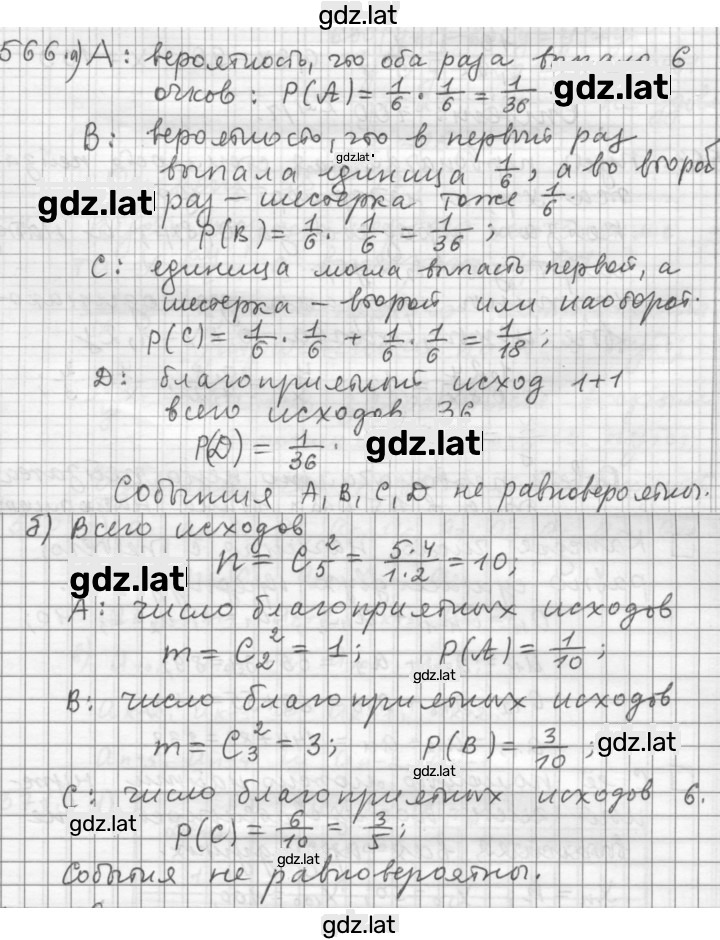 gdz.lat
566.а) А: вероятность, что оба раза выпало 6
очков: P(A) = 1/6 · 1/6 = 1/36 gdz.lat
B: вероятность, что в первый раз
gdz.lat
выпала единица 1/6, а во второй
gdz.lat раз – шестерка тоже 1/6.
P(B) = 1/6 · 1/6 = 1/36;
C: единица могла выпасть первой, а
шестерка – второй или наоборот.
P(C) = 1/6 · 1/6 + 1/6 · 1/6 = 1/18;
D: благоприятный исход 1+1
всего исходов 36
P(D) = 1/36. gdz.lat
События A, B, C, D не равновероятны.
б) Всего исходов
gdz.lat n = C₅² = 5·4/1·2 = 10;
A: число благоприятных исходов
m = C₂² = 1; P(A) = 1/10;
gdz.lat
B: число благоприятных исходов
m = C₃² = 3; P(B) = 3/10; gdz.lat
gdz.lat
C: число благоприятных исходов 6.
gdz.lat P(C) = 6/10 = 3/5;
gdz.lat
События не равновероятны.
gdz.lat